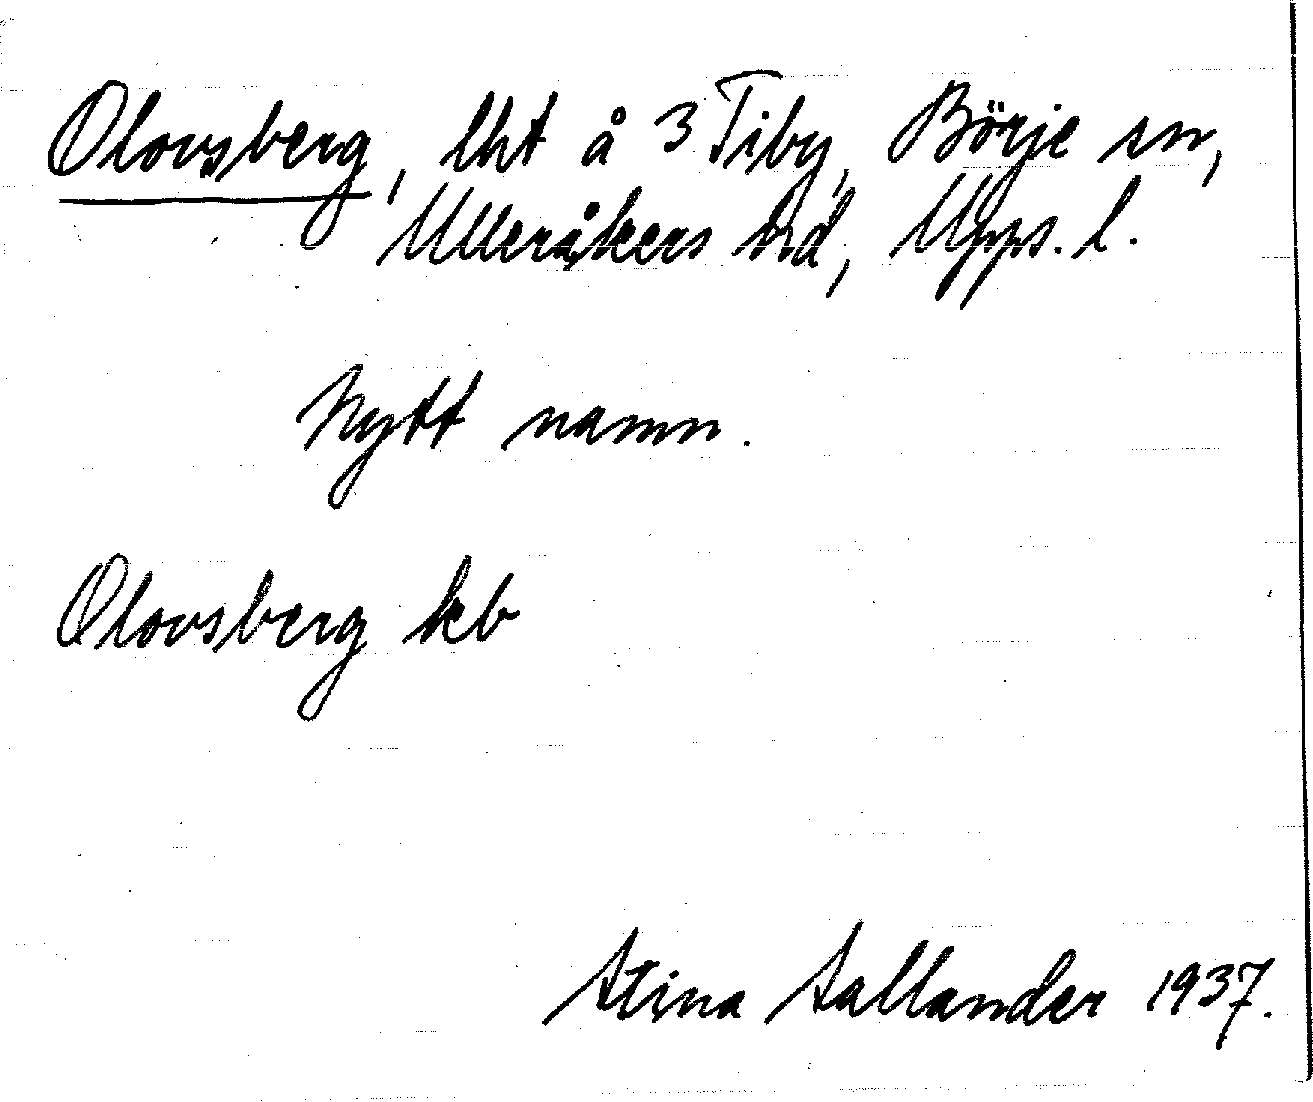 Olovsberg, lht å 3 Tiby, Börje sn,
Ulleråkers hd, Upps. l.
Nytt namn.
Olovsberg kb
Stina Sallander 1937.